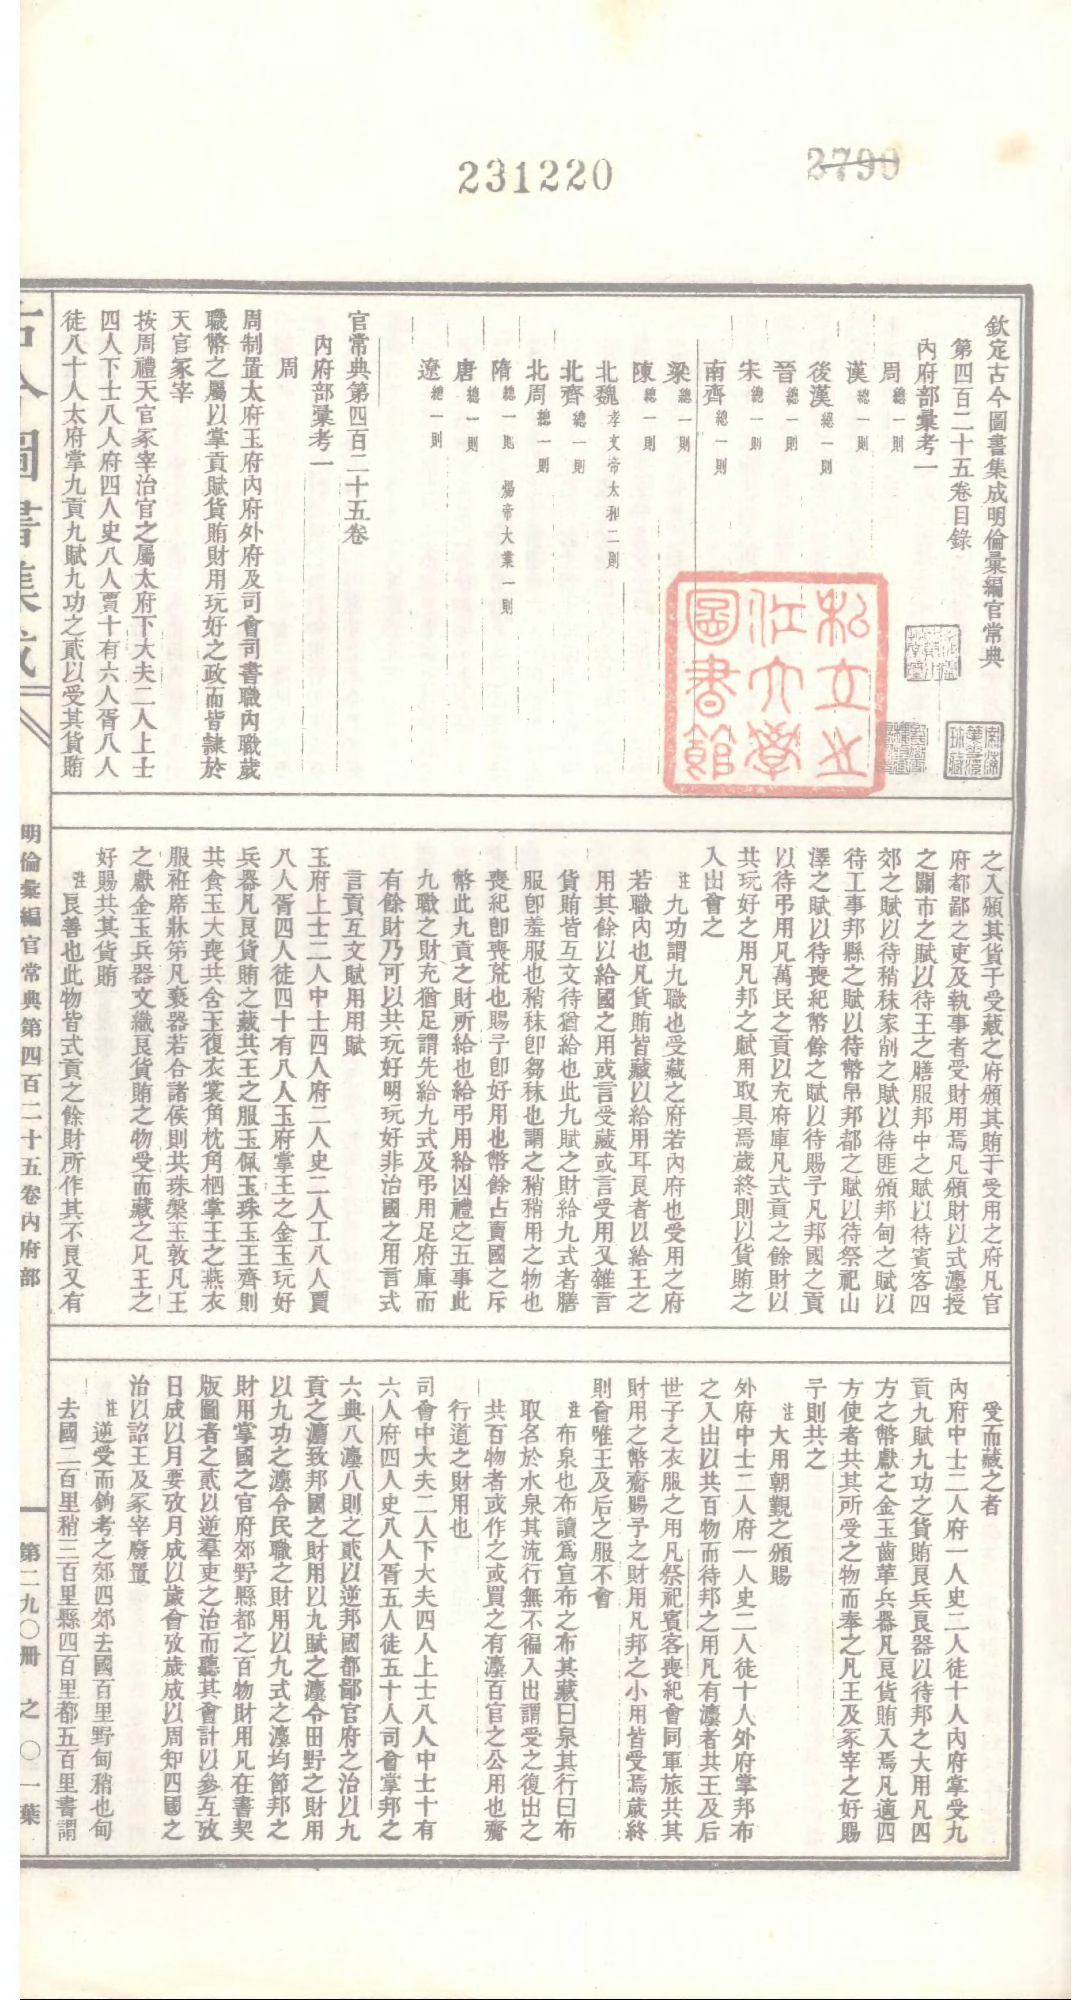 231220
2790
欽定古今圖書集成明倫彙編官常典
第四百二十五卷目錄
內府部彙考一
周總一則
漢總一則
後漢總一則
晉總一則
宋總一則
南齊總一則
梁總一則
陳總一則
北魏孝文帝太和二則
北齊總一則
北周總一則
隋總一則 煬帝大業一則
唐總一則
遼總一則
官常典第四百二十五卷
內府部彙考一
周
周制置太府玉府內府外府及司會司書職內職歲
職幣之屬以掌貢賦貨賄財用玩好之政而皆隷於
天官冢宰
按周禮天官冢宰治官之屬太府下大夫二人上士
四人下士八人府四人史八人賈十有六人胥八人
徒八十人太府掌九貢九賦九功之貳以受其貨賄
之入頒其貨于受藏之府頒其賄于受用之府凡官
府都鄙之吏及執事者受財用焉凡頒財以式灋授
之關市之賦以待王之膳服邦中之賦以待賓客四
郊之賦以待稍秣家削之賦以待匪頒邦甸之賦以
待工事邦縣之賦以待幣帛邦都之賦以待祭祀山
澤之賦以待喪紀幣餘之賦以待賜予凡邦國之貢
以待弔用凡萬民之貢以充府庫凡式貢之餘財以
共玩好之用凡邦之賦用取具焉歲終則以貨賄之
入出會之
註九功謂九職也受藏之府若內府也受用之府
若職內也凡貨賄皆藏以給用耳良者以給王之
用其餘以給國之用或言受藏或言受用又雜言
貨賄皆互文待猶給也此九賦之財給九式者膳
服卽羞服也稍秣卽芻秣也謂之稍稍用之物也
喪紀卽喪荒也賜予卽好用也幣餘占賣國之斥
幣此九貢之財所給也給弔用給凶禮之五事此
九職之財充猶足謂先給九式及弔用足府庫而
有餘財乃可以共玩好明玩好非治國之用言式
言貢互文賦用用賦
玉府上士二人中士四人府二人史二人工八人賈
八人胥四人徒四十有八人玉府掌王之金玉玩好
兵器凡良貨賄之藏共王之服玉佩玉珠玉王齊則
共食玉大喪共含玉復衣裳角枕角柶掌王之燕衣
服衽席牀笫凡褻器若合諸侯則共珠槃玉敦凡王
之獻金玉兵器文織良貨賄之物受而藏之凡王之
好賜共其貨賄
註良善也此物皆式貢之餘財所作其不良又有
受而藏之者
內府中士二人府一人史二人徒十人內府掌受九
貢九賦九功之貨賄良兵良器以待邦之大用凡四
方之幣獻之金玉齒革兵器凡良貨賄入焉凡適四
方使者共其所受之物而奉之凡王及冢宰之好賜
予則共之
註大用朝覲之頒賜
外府中士二人府一人史二人徒十人外府掌邦布
之入出以共百物而待邦之用凡有灋者共王及后
世子之衣服之用凡祭祀賓客喪紀會同軍旅共其
財用之幣齎賜予之財用凡邦之小用皆受焉歲終
則會唯王及后之服不會
註布泉也布讀爲宣布之布其藏曰泉其行曰布
取名於水泉其流行無不徧入出謂受之復出之
共百物者或作之或買之有灋百官之公用也齎
行道之財用也
司會中大夫二人下大夫四人上士八人中士十有
六人府四人史八人胥五人徒五十人司會掌邦之
六典八灋八則之貳以逆邦國都鄙官府之治以九
貢之灋致邦國之財用以九賦之灋令田野之財用
以九功之灋令民職之財用以九式之灋均節邦之
財用掌國之官府郊野縣都之百物財用凡在書契
版圖者之貳以逆羣吏之治而聽其會計以參互攷
日成以月要攷月成以歲會攷歲成以周知四國之
治以詔王及冢宰廢置
註逆受而鉤考之郊四郊去國百里野甸稍也甸
去國二百里稍三百里縣四百里都五百里書謂
古今圖書集成
明倫彙編官常典第四百二十五卷內府部
第二九〇冊之〇一葉
私立之江大學圖書館